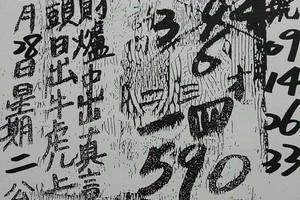 月28日星期二公
頭日出牛虎上
財爐中出真言
3 4
6
十
三 三
一 四
590
09
14
26
33